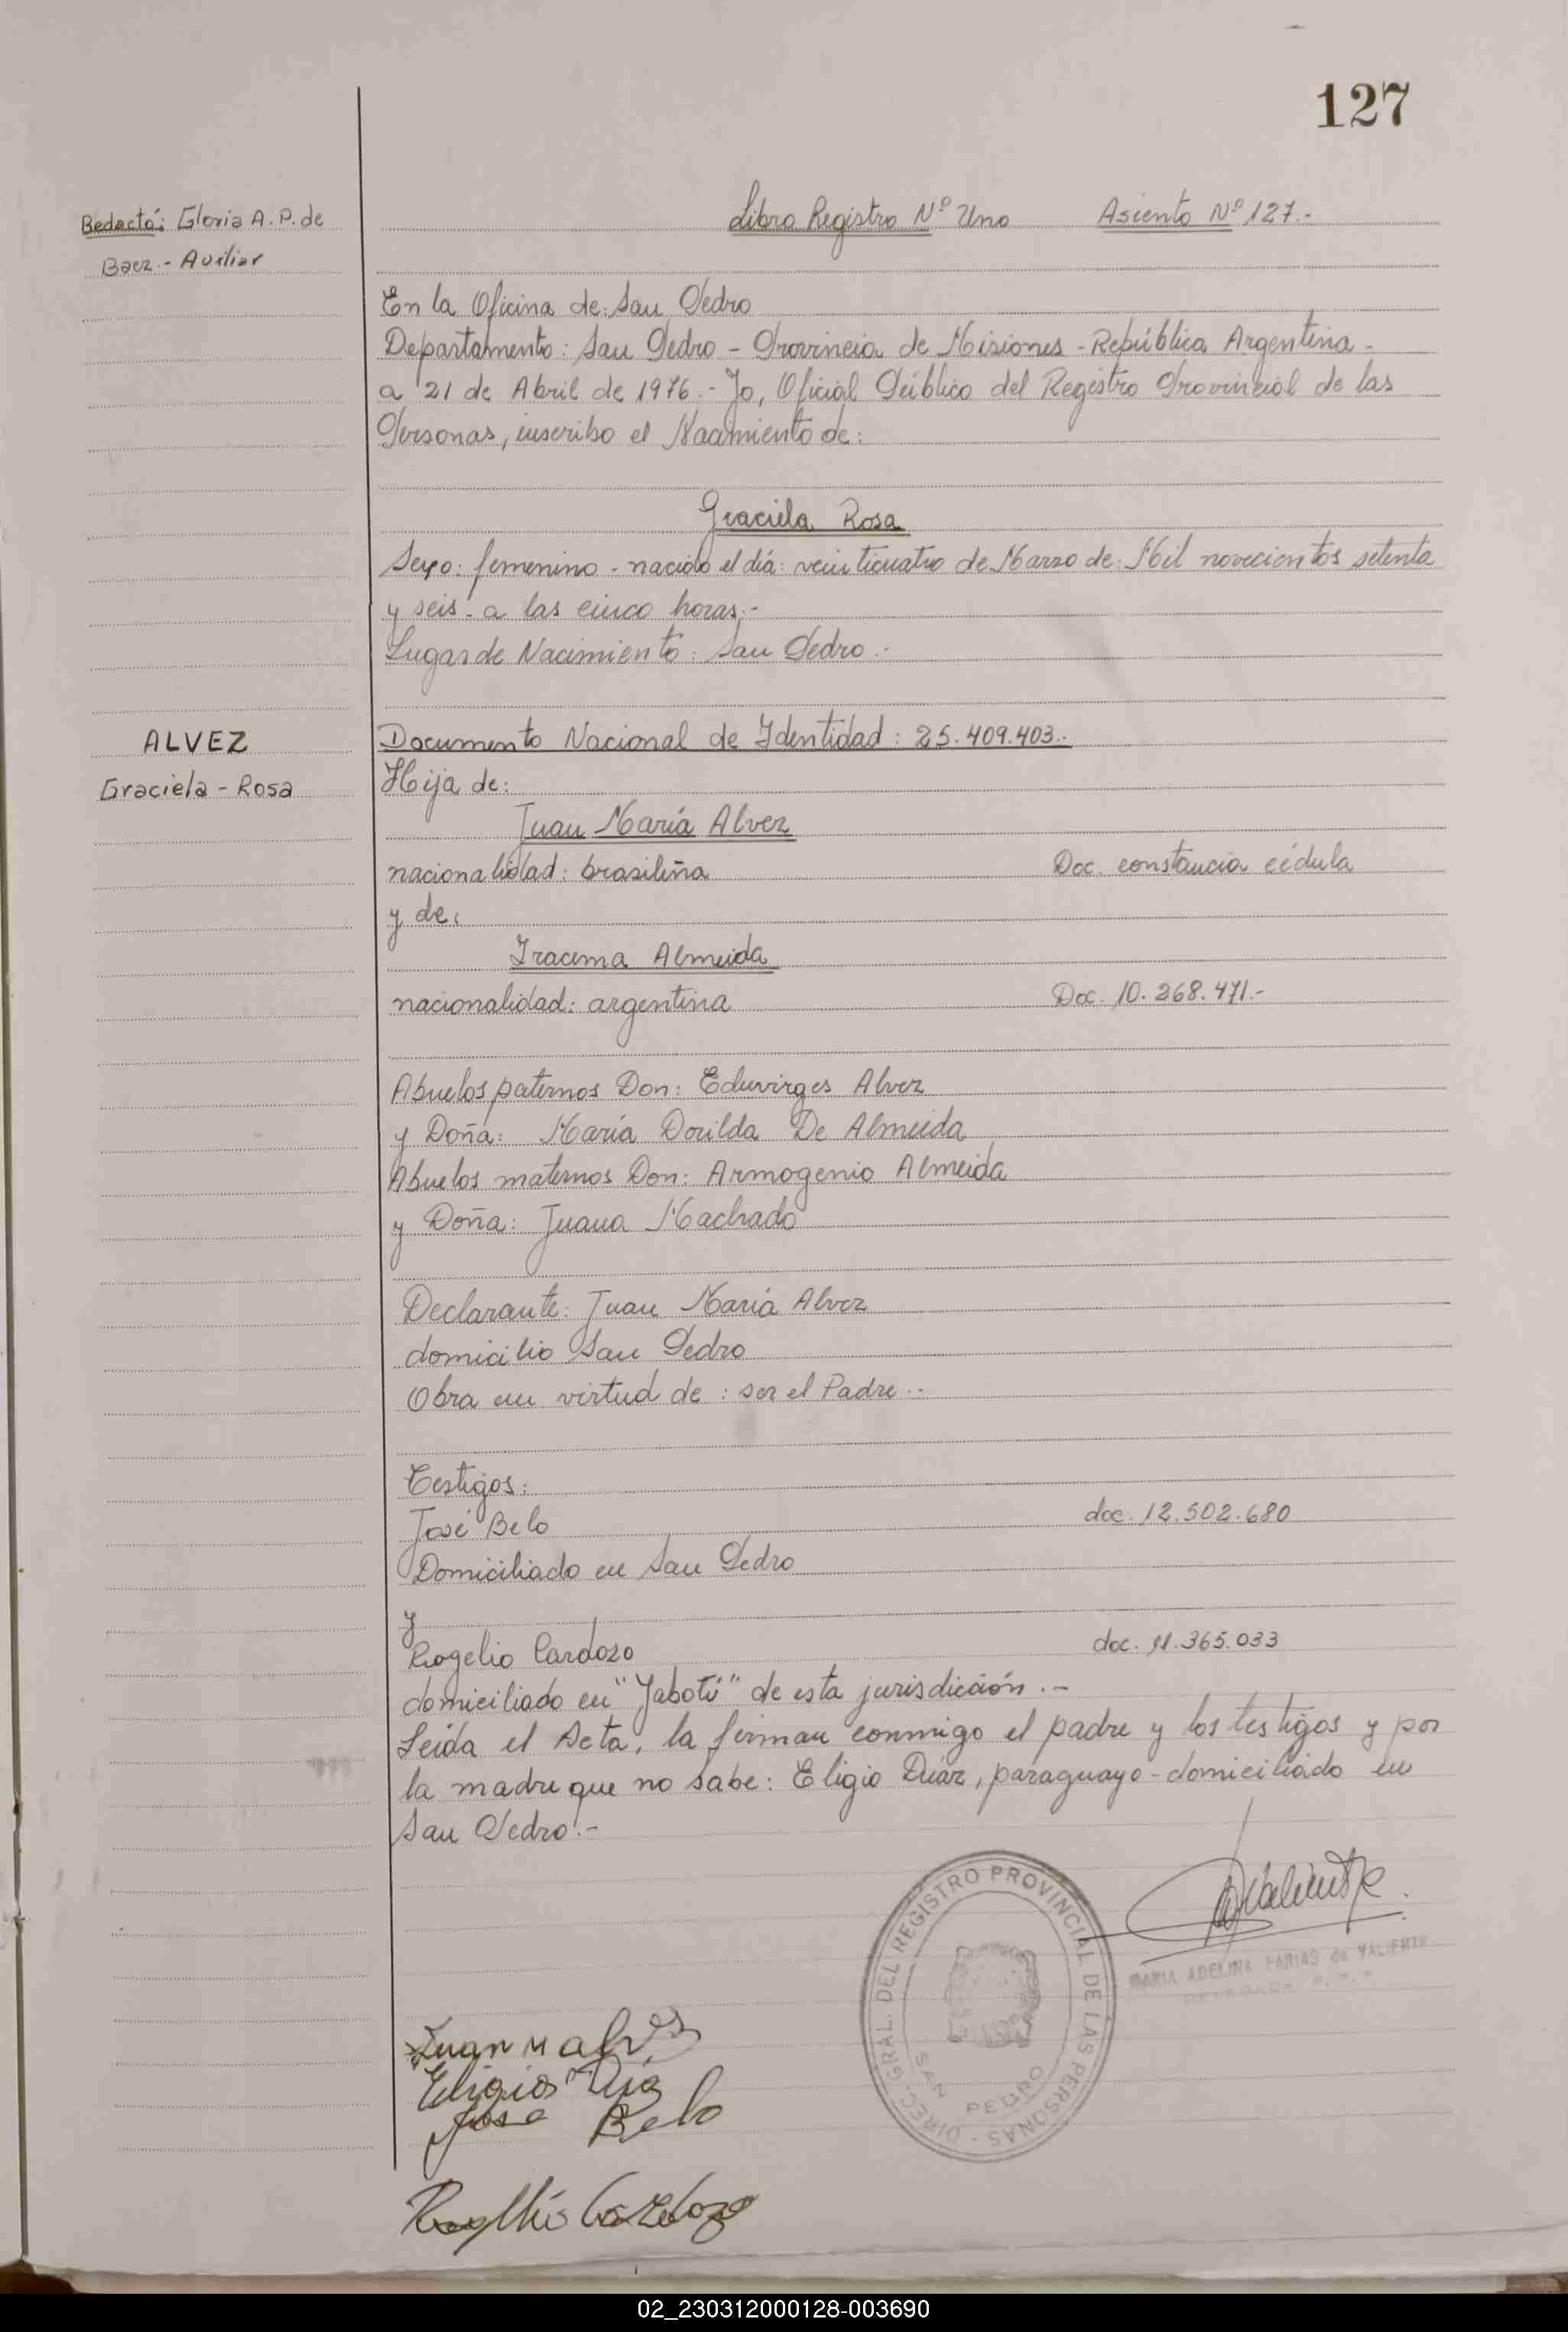 127
Redactó: Gloria A. P. de
Baez.- Auxiliar
Libro Registro Nº Uno Asiento Nº 127.-
En la Oficina de: San Pedro
Departamento: San Pedro - Provincia de Misiones - República Argentina -
a 21 de Abril de 1976.- Yo, Oficial Público del Registro Provincial de las
Personas, inscribo el Nacimiento de:
Graciela Rosa
Sexo: femenino - nacido el día: veinticuatro de Marzo de Mil novecientos setenta
y seis - a las cinco horas.-
Lugar de Nacimiento: San Pedro.-
ALVEZ
Graciela - Rosa
Documento Nacional de Identidad: 25.409.403.-
Hija de:
Juan María Alvez
nacionalidad: brasileña Doc. constancia cédula
y de:
Iracema Almeida
nacionalidad: argentina Doc. 10.268.471.-
Abuelos paternos Don: Eduvirges Alvez
y Doña: María Dorilda De Almeida
Abuelos maternos Don: Armogenio Almeida
y Doña: Juana Machado
Declarante: Juan María Alvez
domicilio San Pedro
Obra en virtud de: ser el Padre.-
Testigos:
José Belo doc. 12.502.680
Domiciliado en San Pedro
y
Rogelio Cardozo doc. 11.365.033
domiciliado en "Yabotí" de esta jurisdicción.-
Leída el Acta, la firman conmigo el padre y los testigos y por
la madre que no sabe: Eligio Díaz, paraguayo - domiciliado en
San Pedro.-
DIREC. GRAL. DEL REGISTRO PROVINCIAL DE LAS PERSONAS -
SAN PEDRO
MARIA ADELINA FARIAS de VALIENTE
Juan M Alvez
Eligio Dia
Jose Belo
Rogelio Cardozo
02_230312000128-003690